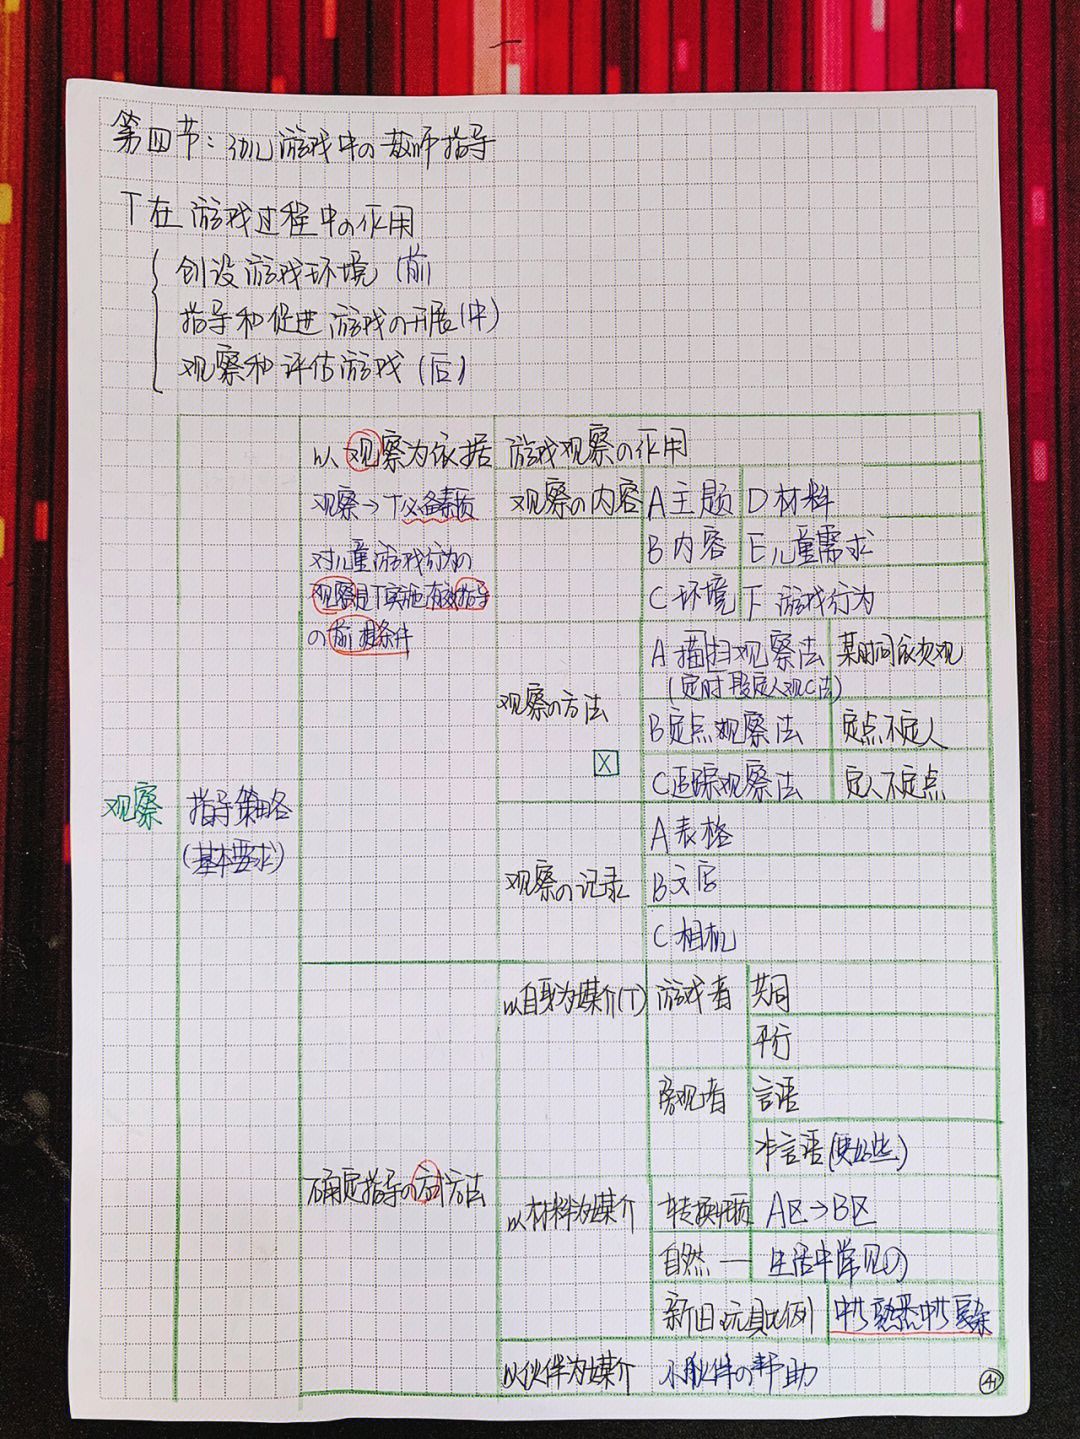 第四节：幼儿游戏中の教师指导
T在游戏过程中の作用
创设游戏环境（前）
指导和促进游戏の开展（中）
观察和评估游戏（后）
以观察为依据 游戏观察の作用
观察→T必备素质
对儿童游戏行为の
观察是T实施有效指导
の前提条件
观察の内容 A主题 D材料
B内容 E儿童需求
C环境 F游戏行为
观察の方法
A扫描观察法 某时间依次观
（定时段定人观C法）
B定点观察法 定点不定人
X
C追踪观察法 定人不定点
观察 指导策略
（基本要求）
观察の记录
A表格
B文字
C相机
确定指导の方式方法
以自身为媒介（T） 游戏者 共同
平行
旁观者 言语
非言语
以材料为媒介 A区→B区
自然 — 生活中常见の
新旧玩具比例 中熟悉中复杂
以伙伴为媒介 小伙伴の帮助
41